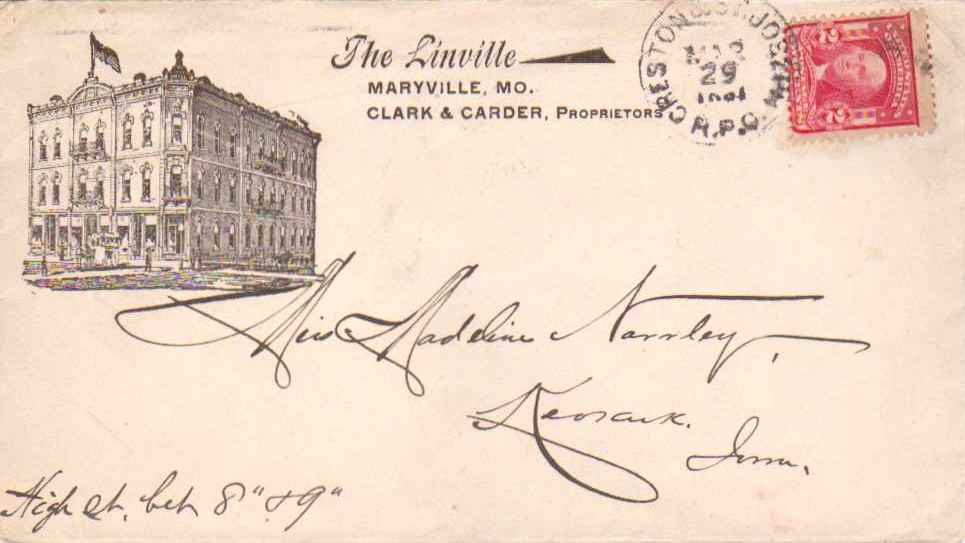 The Linville
MARYVILLE, MO.
CLARK & CARDER, PROPRIETORS
CRESTON & ST. JO
29
R.P.O.
2 2
Miss Madeline
Keokuk.
Iowa.
High St. bet 8" & 9"